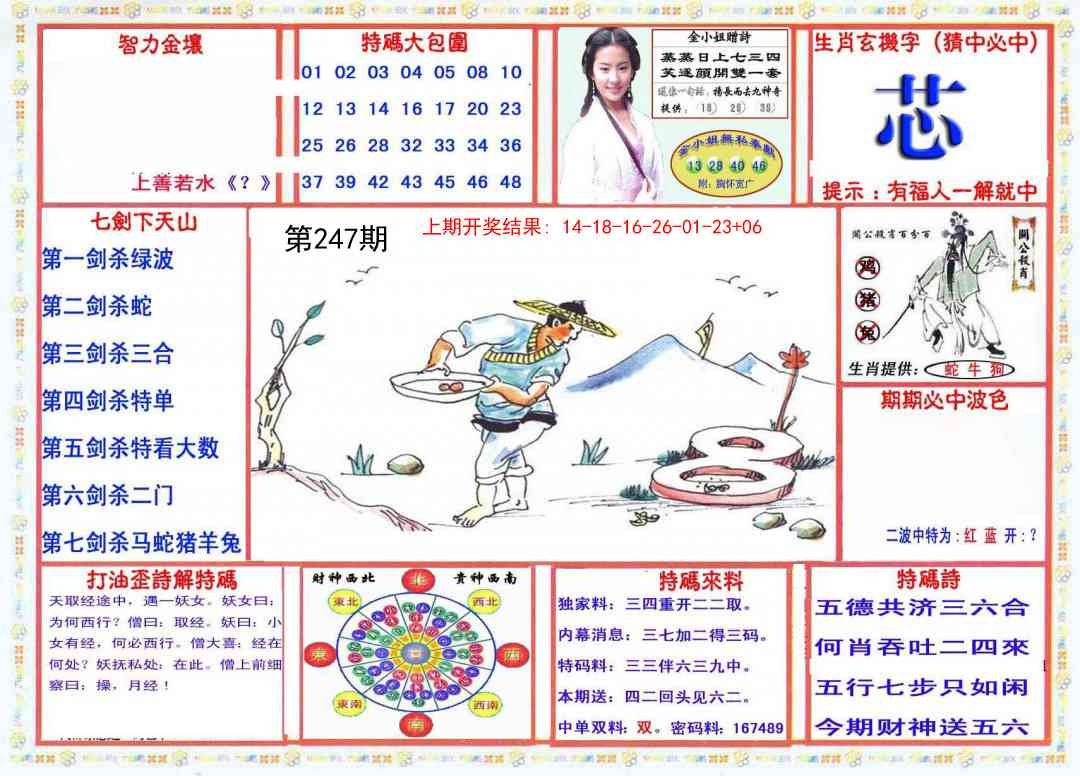 智力金壤
上善若水《？》
特碼大包圍
01 02 03 04 05 08 10
12 13 14 16 17 20 23
25 26 28 32 33 34 36
37 39 42 43 45 46 48
金小姐贈詩
蒸蒸日上七三四
笑逐顔開雙一套
揚長而去九神奇
提供：（18） 28） 38）
金小姐無私奉獻
13 28 40 46
附：胸怀宽广
生肖玄機字（猜中必中）
芯
提示：有福人一解就中
七劍下天山
第一剑杀绿波
第二剑杀蛇
第三剑杀三合
第四剑杀特单
第五剑杀特看大数
第六剑杀二门
第七剑杀马蛇猪羊兔
第247期
上期开奖结果：14-18-16-26-01-23+06
關公殺肖百分百
關公殺肖
鸡
猪
兔
生肖提供：蛇 牛 狗
期期必中波色
二波中特为：红 蓝 开：？
打油歪詩解特碼
天取经途中，遇一妖女。妖女曰：
为何西行？僧曰：取经。妖曰：小
女有经，何必西行。僧大喜：经在
何处？妖抚私处：在此。僧上前细
察曰：操，月经！
財神西北 貴神西南
北
東北 西北
東 西
東南 西南
南
特碼來料
独家料：三四重开二二取。
内幕消息：三七加二得三码。
特码料：三三伴六三九中。
本期送：四二回头见六二。
中单双料：双。密码料：167489
特碼詩
五德共济三六合
何肖吞吐二四來
五行七步只如闲
今期财神送五六